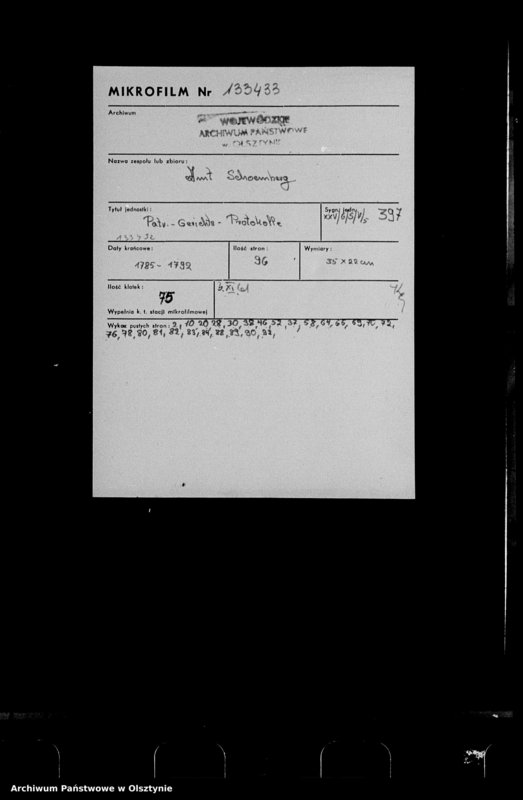 MIKROFILM Nr 133433
Archiwum
WOJEWÓDZKIE
ARCHIWUM PAŃSTWOWE
w OLSZTYNIE
Nazwa zespołu lub zbioru:
Amt Schoemberg
Tytuł jednostki:
Patr.-Gerichts-Protokolle
Sygn. jedn.
XXVI/6/5/V/5 397
Daty krańcowe:
1785-1792
Ilość stron:
96
Wymiary:
35 x 22 cm
Ilość klatek:
75
Wypełnia k. t. stacji mikrofilmowej
Wykaz pustych stron: 2, 10 20 28, 30, 38 46, 52, 57, 58, 64, 66, 69, 70, 72,
76, 78, 80, 81, 82, 83, 84, 88, 89, 90,
Archiwum Państwowe w Olsztynie